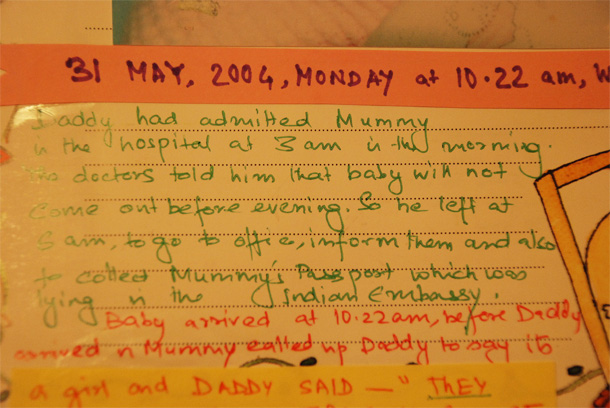 31 MAY, 2004, MONDAY at 10.22 am, W
Daddy had admitted Mummy
in the hospital at 3 am in the morning.
The doctors told him that baby will not
come out before evening. So he left at
5 am, to go to office, inform them and also
to collect Mummy's Passport which was
lying in the Indian Embassy.
Baby arrived at 10.22 am, before Daddy
arrived n Mummy called up Daddy to say it's
a girl and DADDY SAID — "THEY